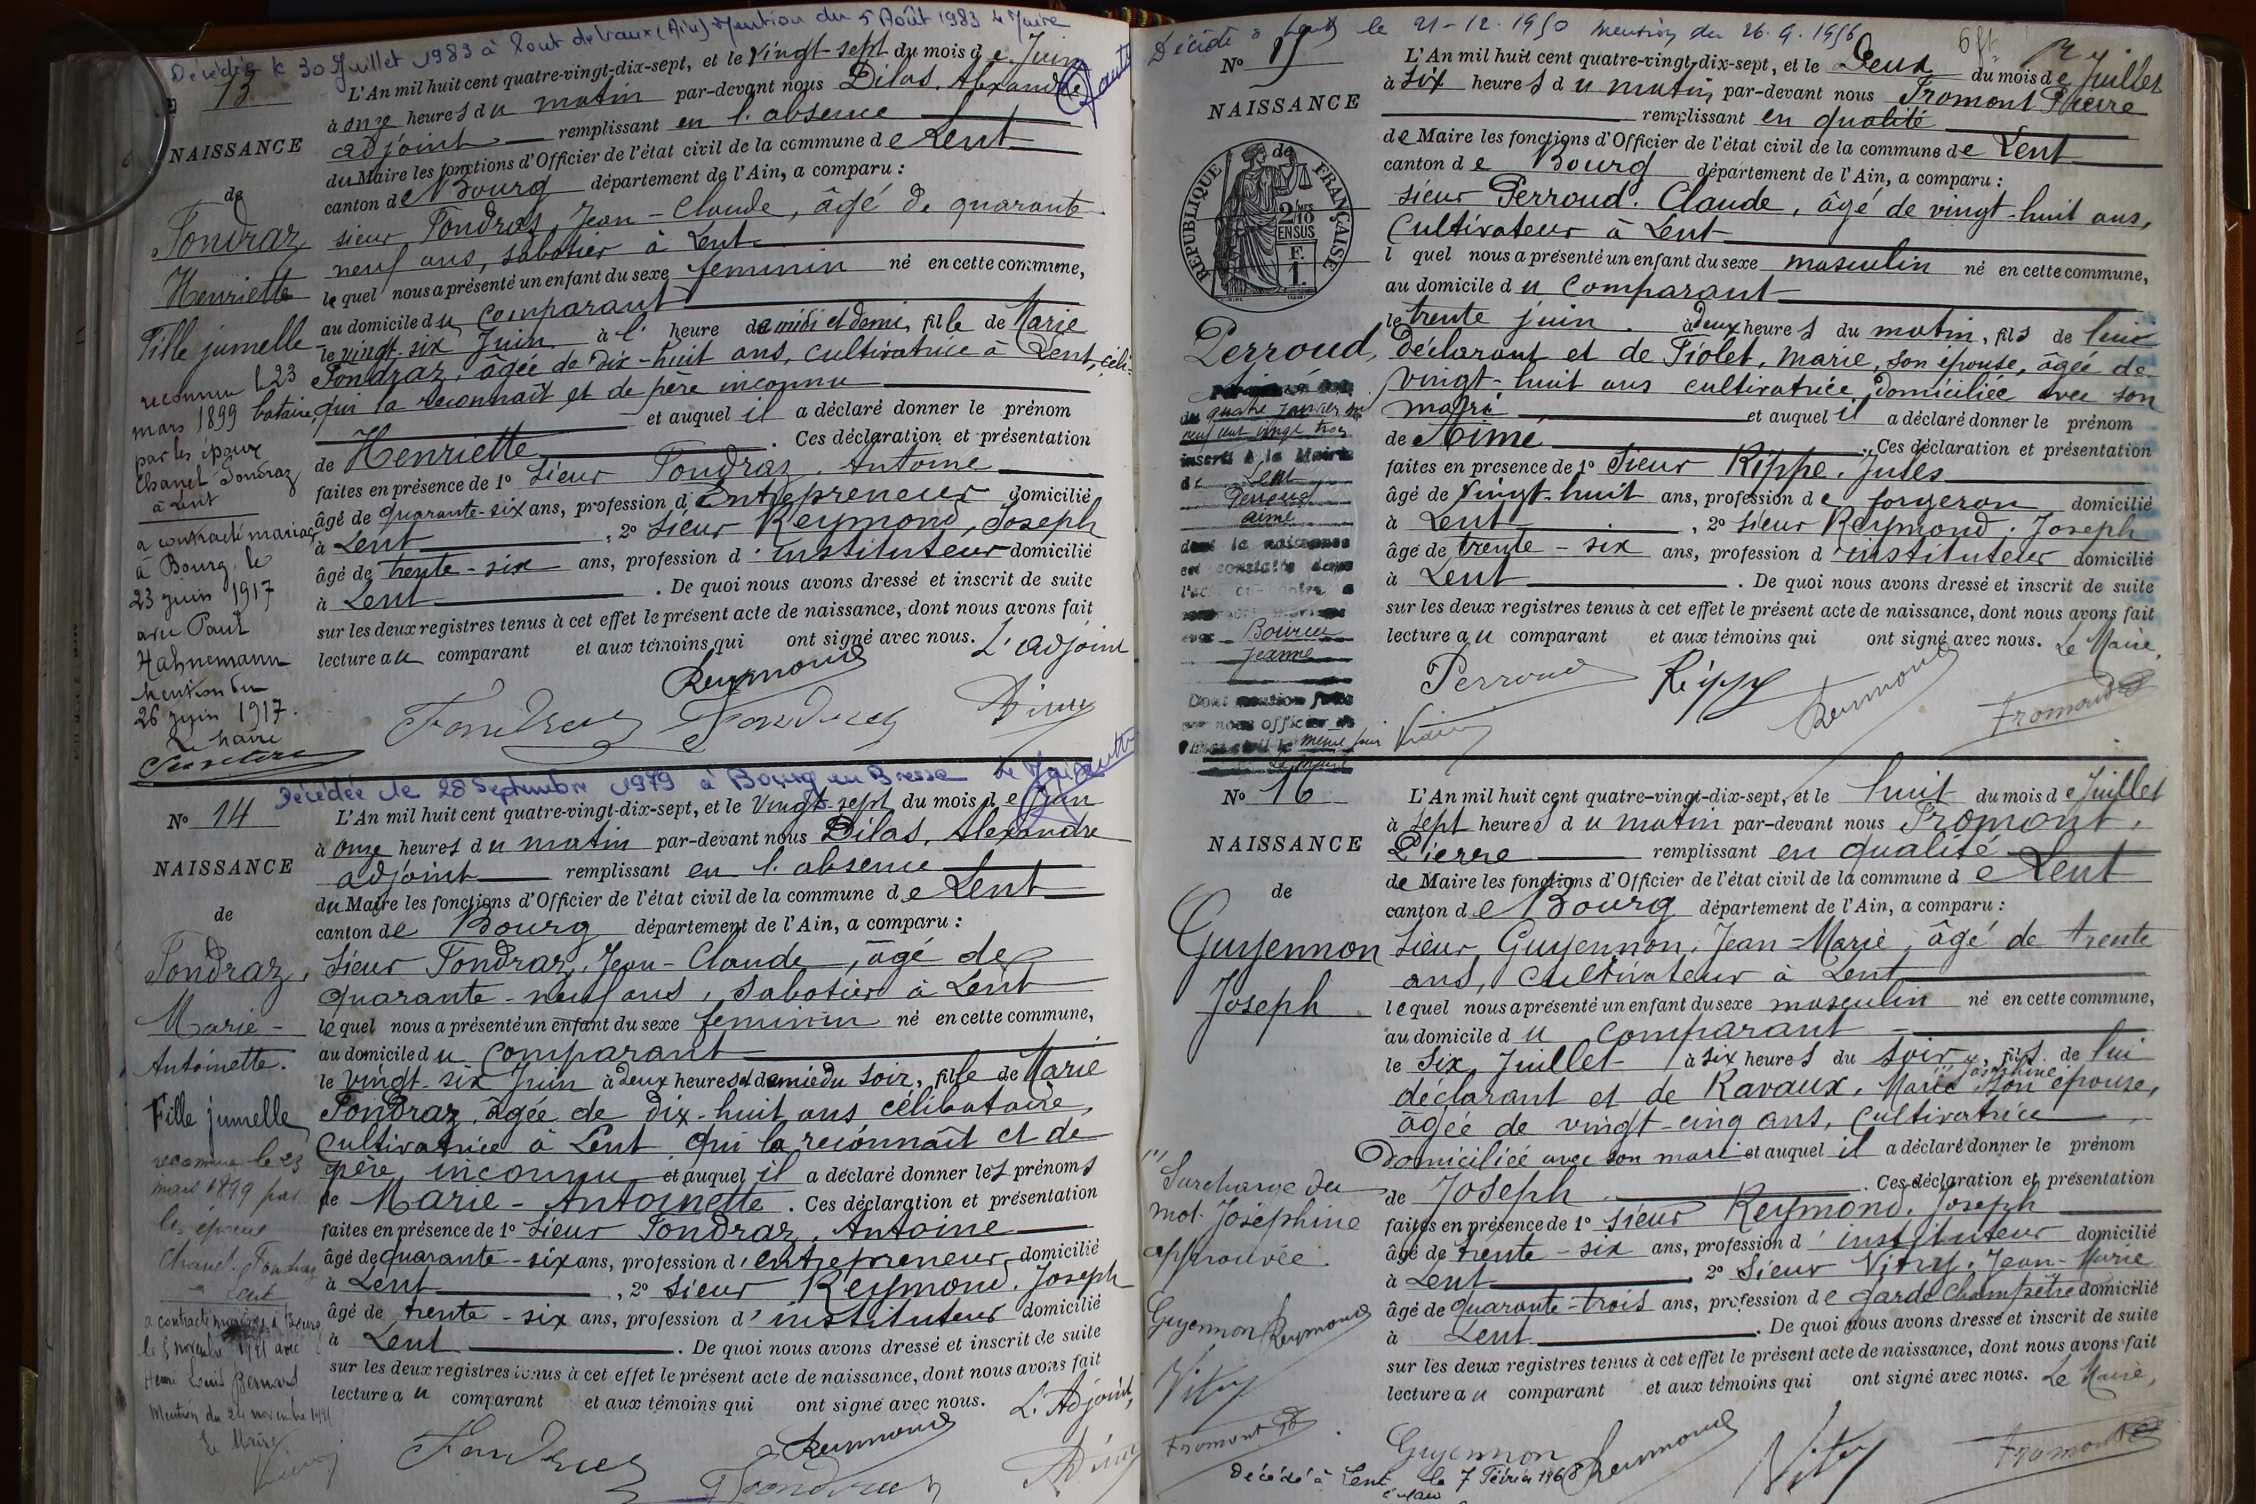 Décédée le 30 Juillet 1983 à Pont de Vaux (Ain) Mention du 5 Août 1983 le Maire
13
NAISSANCE
de
Fondraz
Henriette
Fille jumelle
reconnue le 23
mars 1899
par les époux
Chanel Fondraz
à Lent
a contracté mariage
à Bourg le
23 juin 1917
avec Paul
Hahnemann
Mention du
26 juin 1917.
Le Maire
L'An mil huit cent quatre-vingt-dix-sept, et le Vingt-sept du mois de Juin
à onze heures du matin par-devant nous Dilas, Alexandre
adjoint remplissant en l'absence
du Maire les fonctions d'Officier de l'état civil de la commune de Lent
canton de Bourg département de l'Ain, a comparu :
sieur Fondraz, Jean-Claude, âgé de quarante
neuf ans, sabotier à Lent
lequel nous a présenté un enfant du sexe feminin né en cette commune,
au domicile du comparant
le vingt-six Juin à l' heure de midi et demi, fille de Marie
Fondraz, âgée de dix-huit ans, cultivatrice à Lent, céli-
bataire, qui la reconnaît et de père inconnu
et auquel il a déclaré donner le prénom
de Henriette. Ces déclaration et présentation
faites en présence de 1° Sieur Fondraz, Antoine
âgé de quarante-six ans, profession d'Entrepreneur domicilié
à Lent, 2° Sieur Reymond, Joseph
âgé de trente-six ans, profession d'instituteur domicilié
à Lent. De quoi nous avons dressé et inscrit de suite
sur les deux registres tenus à cet effet le présent acte de naissance, dont nous avons fait
lecture au comparant et aux témoins qui ont signé avec nous. L'adjoint
Reymond
Fondraz Fondraz
Décédée le 28 Septembre 1979 à Bourg en Bresse le Maire
N° 14
NAISSANCE
de
Fondraz,
Marie-
Antoinette.
Fille jumelle
reconnue le 23
mars 1899 par
les époux
Chanel Fondraz
à Lent
a contracté mariage à
le 5 novembre 1921 avec
Henri Louis Bernard
Mention du 24 novembre 1921
Le Maire
L'An mil huit cent quatre-vingt-dix-sept, et le Vingt-sept du mois de Juin
à onze heures du matin par-devant nous Dilas, Alexandre
adjoint remplissant en l'absence
du Maire les fonctions d'Officier de l'état civil de la commune de Lent
canton de Bourg département de l'Ain, a comparu :
Sieur Fondraz, Jean-Claude, âgé de
quarante-neuf ans, sabotier à Lent
lequel nous a présenté un enfant du sexe feminin né en cette commune,
au domicile du comparant
le vingt-six Juin à deux heures et demie du soir, fille de Marie
Fondraz, âgée de dix-huit ans célibataire,
cultivatrice à Lent qui la reconnaît et de
père inconnu et auquel il a déclaré donner les prénoms
de Marie-Antoinette. Ces déclaration et présentation
faites en présence de 1° Sieur Fondraz, Antoine
âgé de quarante-six ans, profession d'entrepreneur domicilié
à Lent, 2° Sieur Reymond, Joseph
âgé de trente-six ans, profession d'instituteur domicilié
à Lent. De quoi nous avons dressé et inscrit de suite
sur les deux registres tenus à cet effet le présent acte de naissance, dont nous avons fait
lecture au comparant et aux témoins qui ont signé avec nous. L'Adjoint,
Reymond
Fondraz Fondraz
Décédé à Lent le 21-12-1950 mention du 26.9.1956
N° 15
NAISSANCE
de
RÉPUBLIQUE FRANÇAISE
2/10
EN SUS
F.
1.
Perroud,
Aimé
du quatre janvier mil
neuf cent vingt trois
inscrit à la Mairie
de Lent
Perroud
aimé
dont la naissance
est constatée dans
l'acte ci-contre a
contracté mariage
avec
Jeanne
Dont mention faite
par nous officier de
l'état civil le même jour
Le Maire
L'An mil huit cent quatre-vingt-dix-sept, et le Deux du mois de Juillet
à six heures du matin, par-devant nous Fromont Pierre
remplissant en qualité
de Maire les fonctions d'Officier de l'état civil de la commune de Lent
canton de Bourg département de l'Ain, a comparu :
sieur Perroud, Claude, âgé de vingt-huit ans,
cultivateur à Lent
lequel nous a présenté un enfant du sexe masculin né en cette commune,
au domicile du comparant
le trente juin à deux heures du matin, fils de lui
déclarant et de Piolet, Marie, son épouse, âgée de
vingt-huit ans cultivatrice, domiciliée avec son
mari et auquel il a déclaré donner le prénom
de Aimé. Ces déclaration et présentation
faites en présence de 1° Sieur Rippe, Jules
âgé de vingt-huit ans, profession de forgeron domicilié
à Lent, 2° Sieur Reymond, Joseph
âgé de trente-six ans, profession d'instituteur domicilié
à Lent. De quoi nous avons dressé et inscrit de suite
sur les deux registres tenus à cet effet le présent acte de naissance, dont nous avons fait
lecture au comparant et aux témoins qui ont signé avec nous. Le Maire,
Perroud Rippe Reymond Fromont
N° 16
NAISSANCE
de
Guyennon
Joseph
(1)
Surcharge du
mot Joséphine
approuvée.
Guyennon Reymond
Vitry
Fromont
L'An mil huit cent quatre-vingt-dix-sept, et le huit du mois de Juillet
à sept heures du matin par-devant nous Fromont,
Pierre remplissant en qualité
de Maire les fonctions d'Officier de l'état civil de la commune de Lent
canton de Bourg département de l'Ain, a comparu :
Sieur Guyennon, Jean-Marie, âgé de trente
ans, cultivateur à Lent
lequel nous a présenté un enfant du sexe masculin né en cette commune,
au domicile du comparant
le six Juillet à six heures du soir, fils de lui
déclarant et de Ravaux, Marie Joséphine son épouse,
âgée de vingt-cinq ans, cultivatrice
domiciliée avec son mari et auquel il a déclaré donner le prénom
de Joseph. Ces déclaration et présentation
faites en présence de 1° Sieur Reymond, Joseph
âgé de trente-six ans, profession d'instituteur domicilié
à Lent 2° Sieur Vitry, Jean-Marie
âgé de quarante-trois ans, profession de garde champêtre domicilié
à Lent. De quoi nous avons dressé et inscrit de suite
sur les deux registres tenus à cet effet le présent acte de naissance, dont nous avons fait
lecture au comparant et aux témoins qui ont signé avec nous. Le Maire,
Guyennon Reymond Vitry Fromont
Décédé à Lent le 7 Février 1968